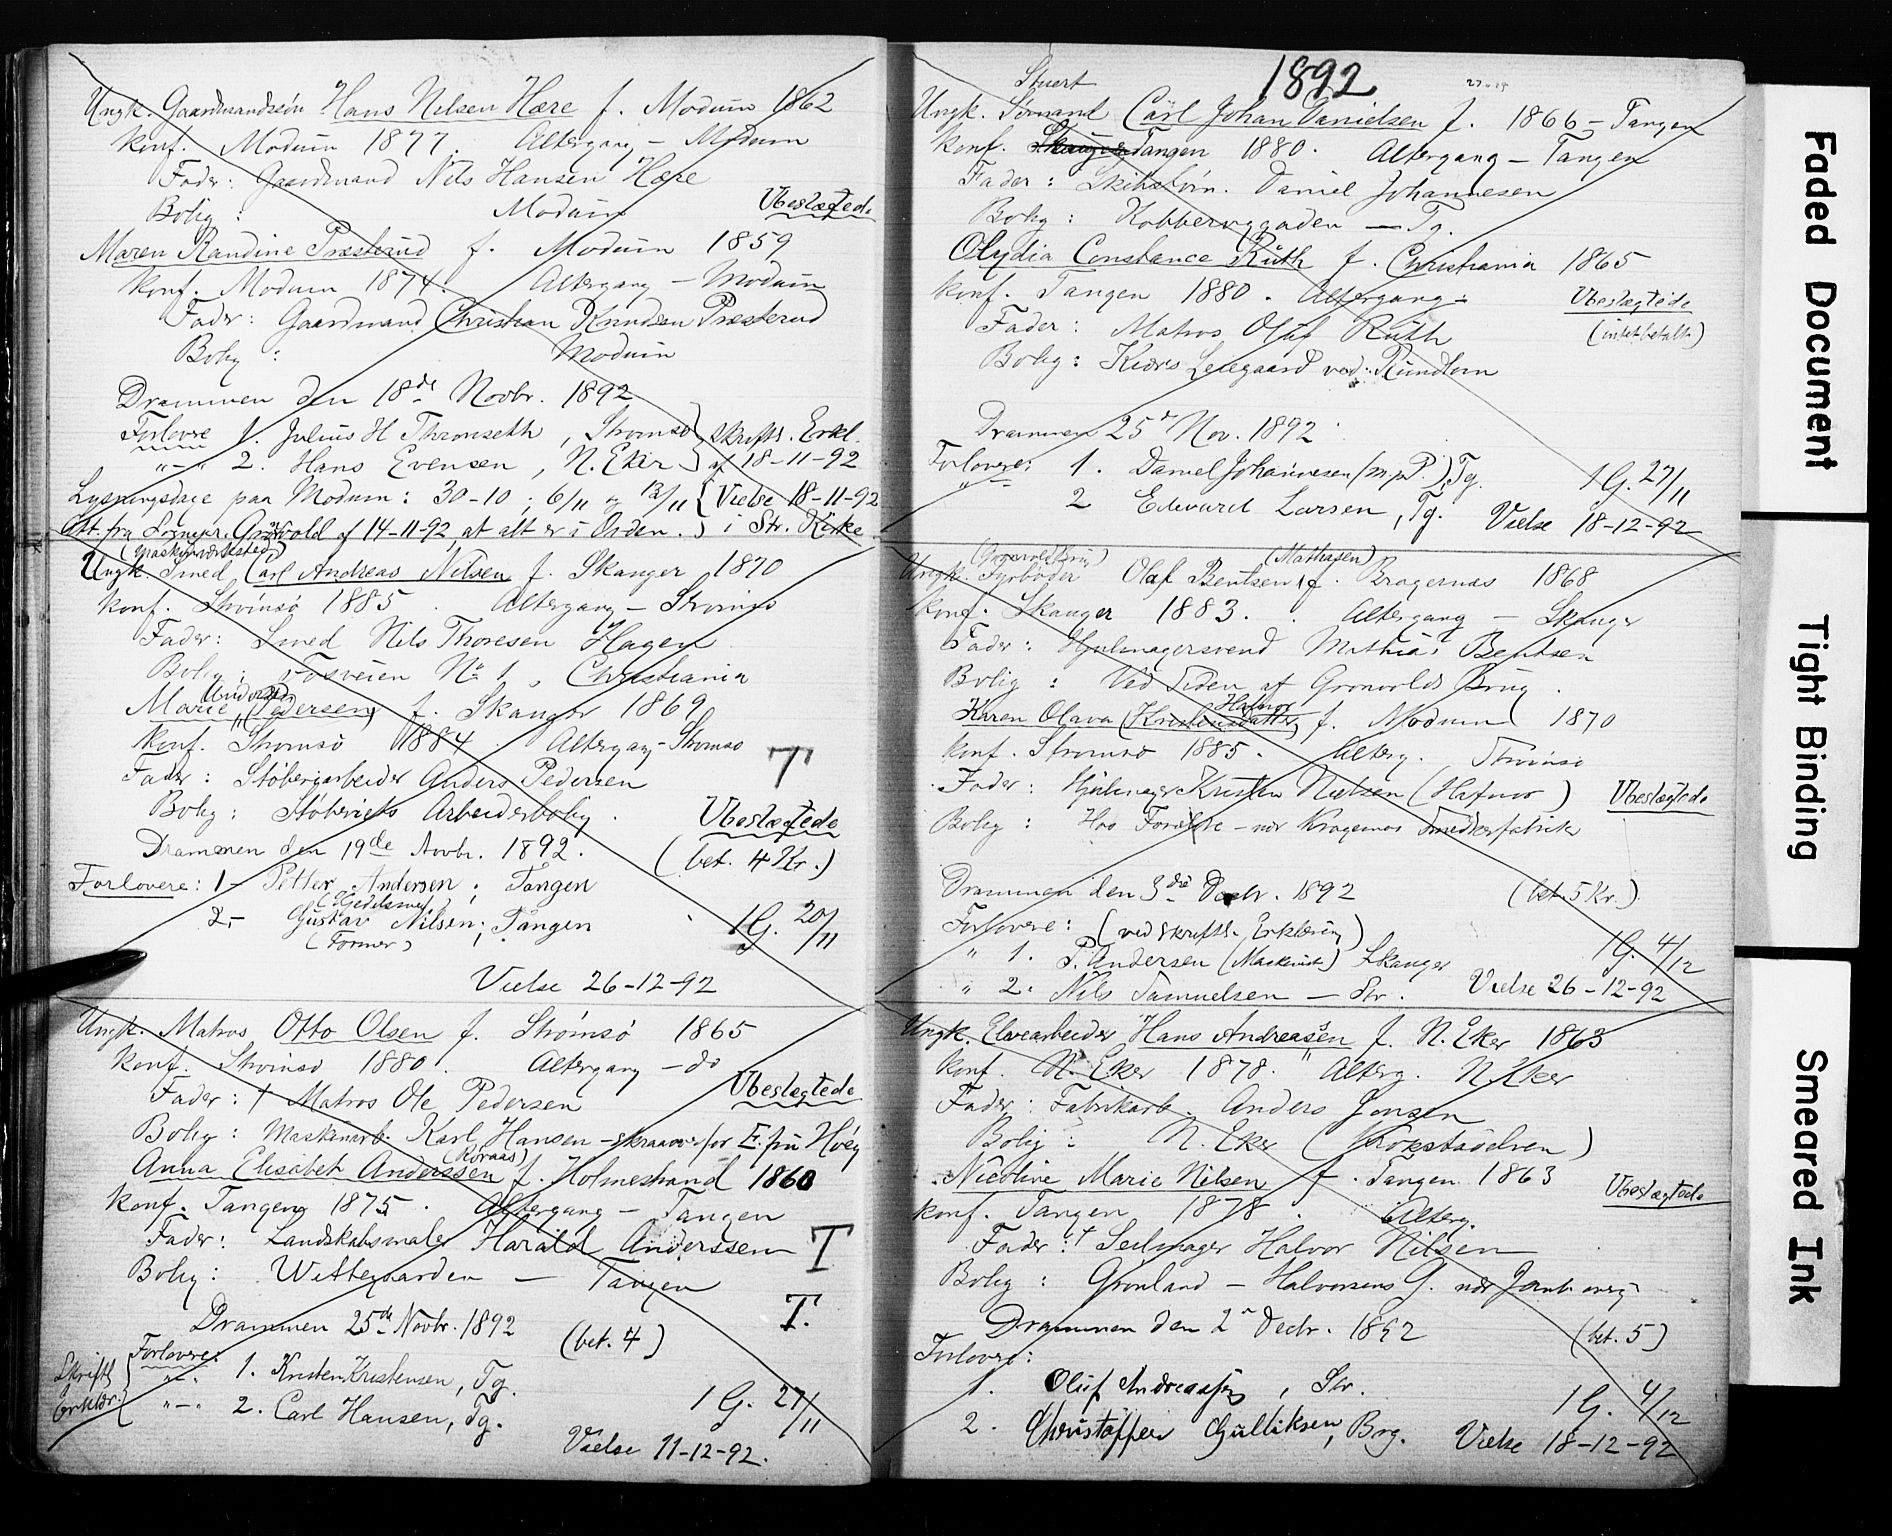 Ungk. Gaardmandssøn Hans Nilsen Hære f. Modum 1862
Konf. Modum 1877. Altergang – Modum
Fader: Gaardmand Nils Hansen Hære
Bolig: Modum
Ubeslægtede
Maren Randine Præsterud f. Modum 1859
Konf. Modum 1874. Altergang – Modum
Fader: Gaardmand Christian Knudsen Præsterud
Bolig: Modum
Drammen den 18de Novbr. 1892
Forlovere 1. Julius H Thronseth, Strømsø } skriftl. Erkl.
" – " 2. Hans Evensen, N. Eker } af 18-11-92
Lysningsdage paa Modum: 30-10; 6/11 og 13/11 { Vielse 18-11-92
Att. fra Sognepr. Grønvold af 14-11-92 at alt er i Orden. } i Str. Kirke
(Maskinværksted)
Ungk. Smed Carl Andreas Nilsen f. Skanger 1870
Konf. Strømsø 1885. Altergang – Strømsø
Fader: Smed Nils Thoresen Hagen
Bolig: Fosveien No 1, Christiania
Marie (Pedersen) f. Skanger 1869
Konf. Strømsø 1884. Altergang – Strømsø
T
Fader: Støberiarbeider Anders Pedersen
Bolig: Støberiets Arbeiderbolig.
Ubeslægtede
Drammen den 19de Novbr. 1892.
(bet. 4 Kr.)
Forlovere: 1- Petter Andersen; Tangen
2- Gustav Nilsen; Tangen
(Former)
1 G. 20/11
Vielse 26-12-92
Ungk. Matros Otto Olsen f. Strømsø 1865
Konf. Strømsø 1880. Altergang – do
Fader: † Matros Ole Pedersen
Ubeslægtede
Bolig: Maskinarb. Karl Hansen – skraaover for E. fru Høeg
(Røraas)
Anna Elisabet Anderssen f. Holmestrand 1860
Konf. Tangen 1875. Altergang – Tangen
Fader: Landskabsmaler Harald Anderssen
T
Bolig: Wittegaarden – Tangen
T.
Drammen 25de Novbr. 1892
(bet. 4)
Skriftl. Erklær: { Forlovere:
" – " 1. Kristen Kristensen, Tg.
" – " 2. Carl Hansen, Tg.
1 G. 27/11
Vielse 11-12-92.
1892
Stuert
Ungk. Sømand Carl Johan Danielsen f. 1866 – Tangen
Konf. Skanger Tangen 1880. Altergang – Tangen
Fader: Skibstøm. Daniel Johannesen
Bolig: Kobbervggaden – Tg.
Olydia Constance Ruth f. Christiania 1865
Konf. Tangen 1880. Altergang –
Ubeslægtede
Fader: Matros Olaf Ruth
(intet betalt)
Bolig: Kiærs Leiegaard ved Rundtom
Drammen 25de Nov. 1892
Forlovere: 1. Daniel Johannesen (m.p.P.), Tg.
1 G. 27/11
2 Edvard Larsen, Tg. Vielse 18-12-92
(Grønvold Brug) (Mathisen)
Ungk. Fyrbøder Olaf Bentsen, f. Bragernæs 1868
Konf. Skanger 1883. Altergang – Skanger
Fader: Hjulmagersvend Mathias Bentsen
Bolig: Ved Siden af Grønvolds Brug.
Hafnor
Karen Olava (Kristensdatter) f. Modum 1870
Konf. Strømsø 1885. Alterg. Strømsø
Fader: Hjulmager Kristen Nielsen (Hafnor)
Ubeslægtede
Bolig: Hos Forældre – nær Kragemos Snedkerfabrik
Drammen den 3die Decbr. 1892
(bet. 5 Kr.)
Forlovere: (ved skriftl. Erklæring)
" 1. P. Andersen (Maskinist) Skanger
1 G. 4/12
" 2. Nils Samuelsen – Str. Vielse 26-12-92
Ungk. Elvearbeider Hans Andreassen f. N. Eker 1863
Konf. N. Eker 1878. Alterg. N. Eker
Fader: Fabrikarb. Anders Jonsen
Bolig: N. Eker (Krokstadelven)
Nicoline Marie Nilsen f. Tangen 1863
Ubeslægtede
Konf. Tangen 1878. Alterg.
Fader: † Seilmager Halvor Nilsen
Bolig: Grønland – Halvorsens G. nær Jernb.overg.
Drammen den 2n Decbr. 1892
(bet. 5)
Forlovere:
1. Oluf Andreassen, Str.
1 G. 4/12
2. Christoffer Gulliksen, Brg. Vielse 18-12-92
Faded Document
Tight Binding
Smeared Ink